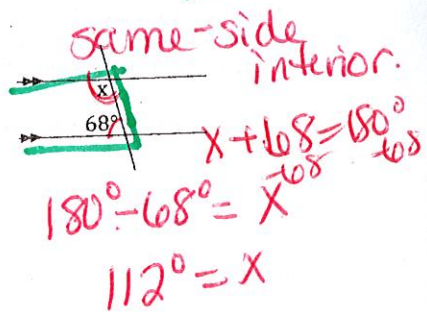 same-side
interior.
x
68°
x + 68 = 180°
-68 -68
180° - 68° = x
112° = x